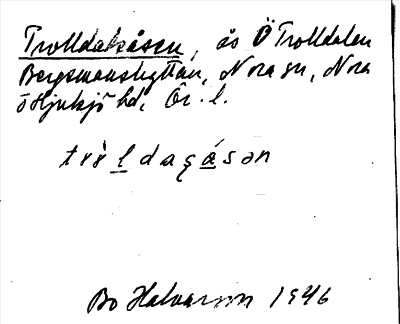 Trolldakåsen, ås Ö Trolldalen
Bergsmanshyttan, Nora sn, Nora
o Hjulsjö hd, Ör. l.
Bo Halvarson 1946